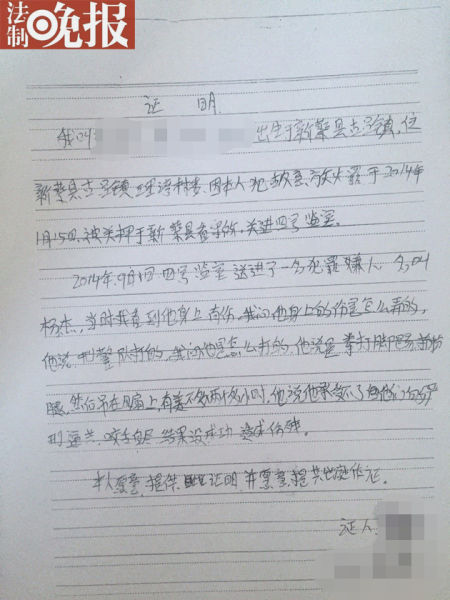 法制晚报
证 明
我叫 出生于新蔡县古吕镇,住
新蔡县古吕镇 因本人犯故意 于2014年
1月15日被关押于新蔡县看守所,关进四号监室。
2014年9月1日四号监室送进了一名犯罪嫌人,名叫
杨杰,当时我看到他身上有伤,我问他身上的伤是怎么弄的,
他说,刑警队打的,我问他是怎么打的,他说是拳打脚踢
腿,然后吊在 上,有差不多两个多小时,他说他承受不了他们的严
刑逼 ,咬舌自尽 结果没成功 造成伤残。
本人愿意提供此证明,并愿意提 作证。
证人